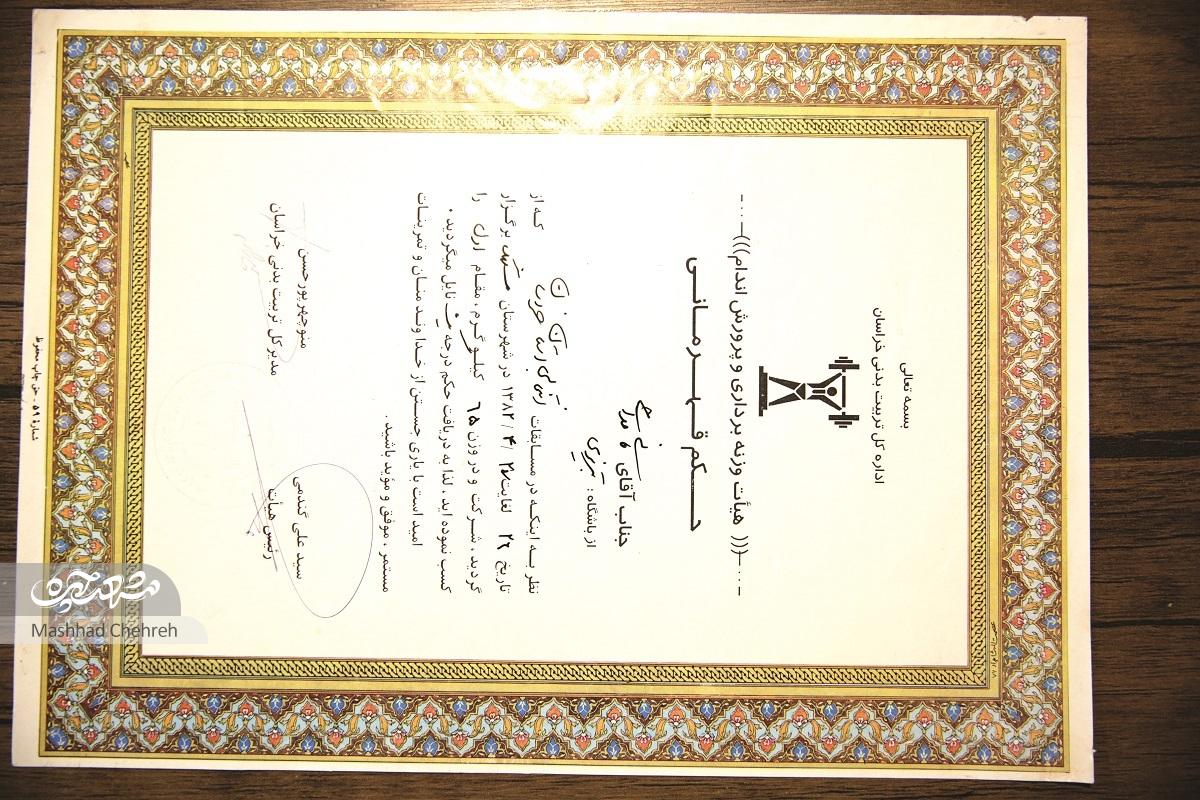 بسمه تعالی
اداره کل تربیت بدنی خراسان
-...-((( هیأت وزنه برداری و پرورش اندام )))-...-
حـکم قـهـرمـانـی
جناب آقای
از باشگاه: تبریزی
نظر به اینکه در مسابقات که از
تاریخ ۲۶ لغایت ۲۷ /۴ /۱۳۸۲ در شهرستان مشهد برگزار
گردید، شرکت و در وزن ۶۵ کیلوگرم، مقام اول را
کسب نموده اید، لذا به دریافت حکم درجه نایل میگردید.
امید است با یاری جستن از خداوند منان و تمرینات
مستمر، موفق و مؤید باشید.
سید علی گندمی
رئیس هیأت
منوچهر پورحسن
مدیر کل تربیت بدنی خراسان
شماره ۵۹ - حق چاپ محفوظ
مشهد چهره
Mashhad Chehreh